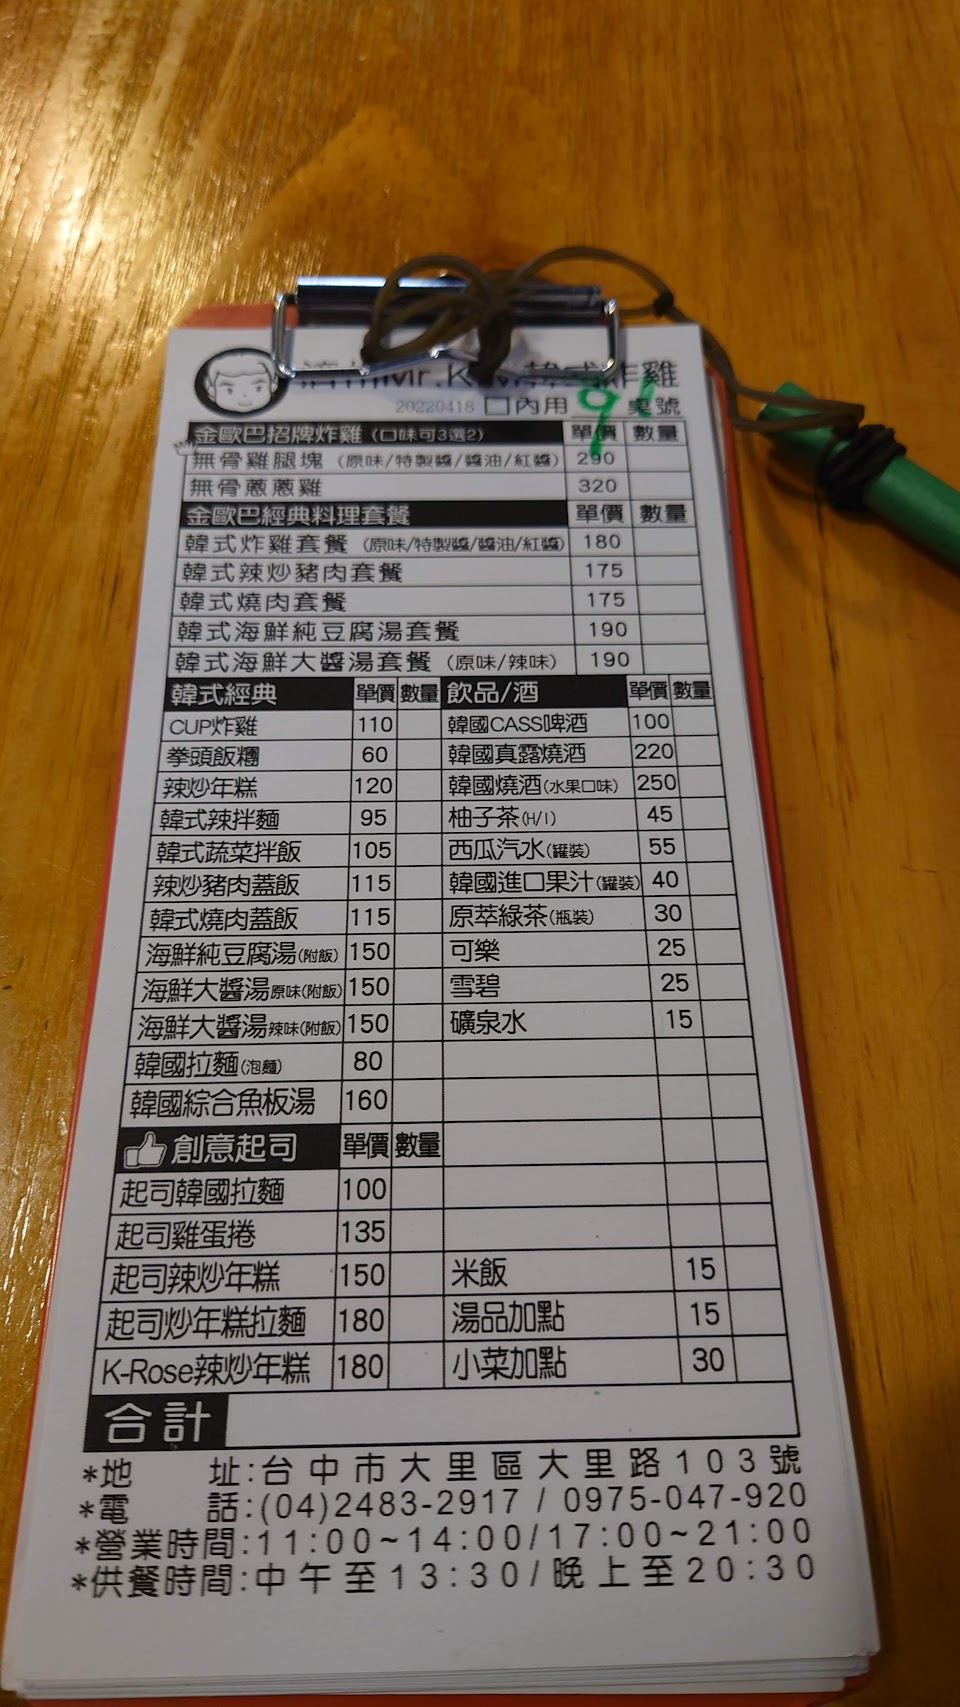 Mr.K 韓式炸雞
20220418 口內用 9 桌號
金歐巴招牌炸雞 (口味可3選2) 單價 數量
無骨雞腿塊 (原味/特製醬/醬油/紅醬) 290
無骨蔥蔥雞 320
金歐巴經典料理套餐 單價 數量
韓式炸雞套餐 (原味/特製醬/醬油/紅醬) 180
韓式辣炒豬肉套餐 175
韓式燒肉套餐 175
韓式海鮮純豆腐湯套餐 190
韓式海鮮大醬湯套餐 (原味/辣味) 190
韓式經典 單價 數量 飲品/酒 單價 數量
CUP炸雞 110 韓國CASS啤酒 100
拳頭飯糰 60 韓國真露燒酒 220
辣炒年糕 120 韓國燒酒(水果口味) 250
韓式辣拌麵 95 柚子茶(H/I) 45
韓式蔬菜拌飯 105 西瓜汽水(罐裝) 55
辣炒豬肉蓋飯 115 韓國進口果汁(罐裝) 40
韓式燒肉蓋飯 115 原萃綠茶(瓶裝) 30
海鮮純豆腐湯(附飯) 150 可樂 25
海鮮大醬湯原味(附飯) 150 雪碧 25
海鮮大醬湯辣味(附飯) 150 礦泉水 15
韓國拉麵(泡麵) 80
韓國綜合魚板湯 160
創意起司 單價 數量
起司韓國拉麵 100
起司雞蛋捲 135
起司辣炒年糕 150 米飯 15
起司炒年糕拉麵 180 湯品加點 15
K-Rose辣炒年糕 180 小菜加點 30
合計
*地 址:台中市大里區大里路103號
*電 話:(04)2483-2917 / 0975-047-920
*營業時間:11:00~14:00/17:00~21:00
*供餐時間:中午至13:30/晚上至20:30